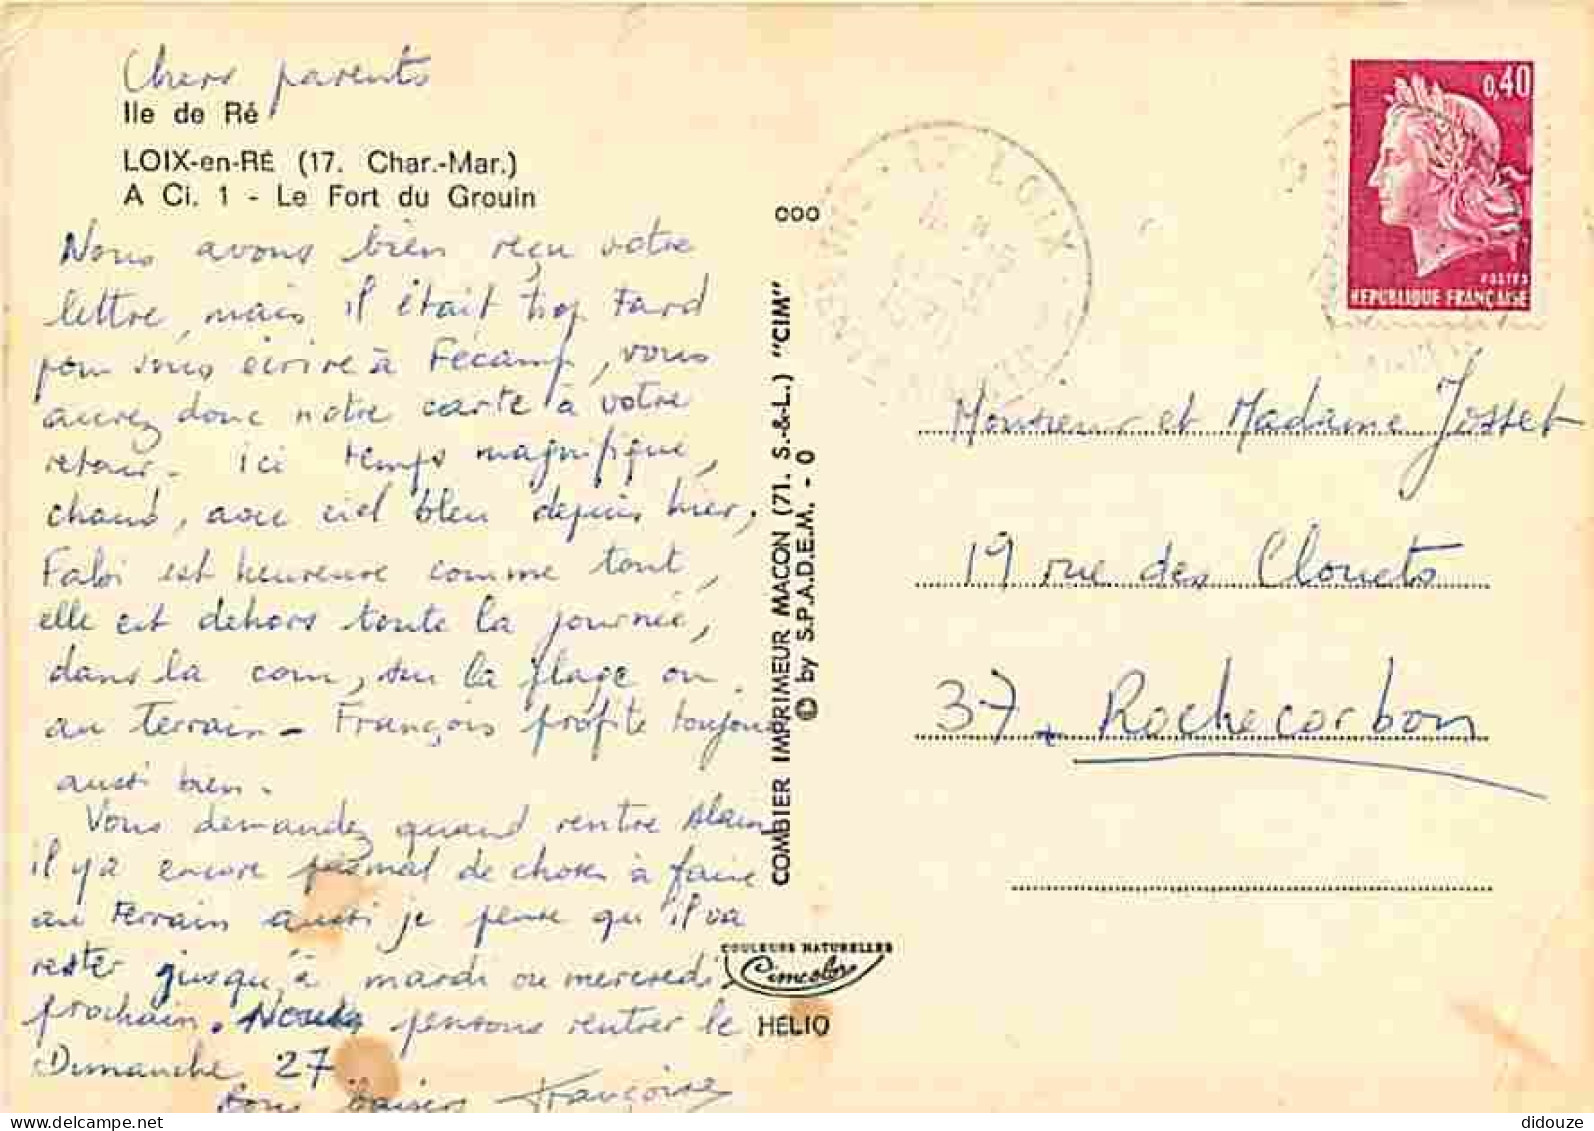 Chers parents
Ile de Ré
LOIX-en-RÉ (17. Char.-Mar.)
A Ci. 1 - Le Fort du Grouin
Nous avons bien reçu votre
lettre, mais il était trop tard
pour vous écrire à Fécamp, vous
aurez donc notre carte à votre
retour. Ici temps magnifique,
chaud, avec ciel bleu depuis hier,
Fabi est heureuse comme tout,
elle est dehors toute la journée,
dans la cour, sur la plage ou
au terrain - François profite toujours
aussi bien.
Vous demandez quand rentre Alain
il y a encore pas mal de choses à faire
au terrain aussi je pense qu'il va
rester jusqu'à mardi ou mercredi
prochain. Nous pensons rentrer le
Dimanche 27
Bons baisers Françoise
000
COMBIER IMPRIMEUR MACON (71. S.-&-L.) "CIM"
© by S.P.A.D.E.M. - 0
COULEURS NATURELLES
Cimcolor
HELIO
LOIX
0,40
POSTES
REPUBLIQUE FRANÇAISE
Monsieur et Madame Josset
19 rue des Clouets
37 - Rochecorbon
didouze @ delcampe.net